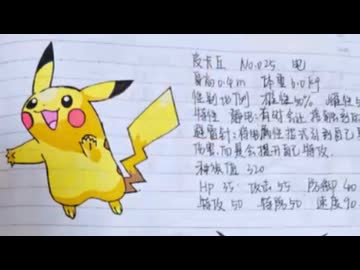 皮卡丘 No.025 电
身高0.4m 体重6.0kg
性别比例 雄性50% 雌性5
特性 静电:有时会让接触到
避雷针:将电属性招式引到自己
伤害,而且会提升自己特攻
种族值 320
HP 35 攻击55 防御40
特攻50 特防50 速度90